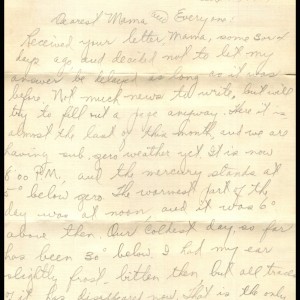 Dearest Mama and Everyone:
Received your letter, Mama, some 3 or 4
days ago and decided not to let my
answer be delayed as long as it was
before. Not much news to write, but will
try to fill out a page anyway. Here it is
almost the last of this month, and we are
having sub. zero weather yet. It is now
8:00 P.M. and the mercury stands at
5° below zero. The warmest part of the
day was at noon, and it was 6°
above then. Our coldest day, so far
has been 30° below. I had my ear
slightly frost-bitten then but all traces
of it has disappeared now. That is the only